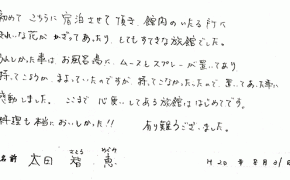 初めて こちらに 宿泊させて頂き、館内のいたる所に
きれいな花が かざってあったり、とてもすてきな旅館でした。
うれしかった事は お風呂場に ムースとスプレーが置いてあり
持ってこようか まよっていたのですが、持ってこなかったので、置いてあった事に
感動しました。 ここまで 心使いしてある旅館は はじめてです。
料理も本当においしかった!! 有り難うございました。
名前 太田 智恵 H20年 8月31日